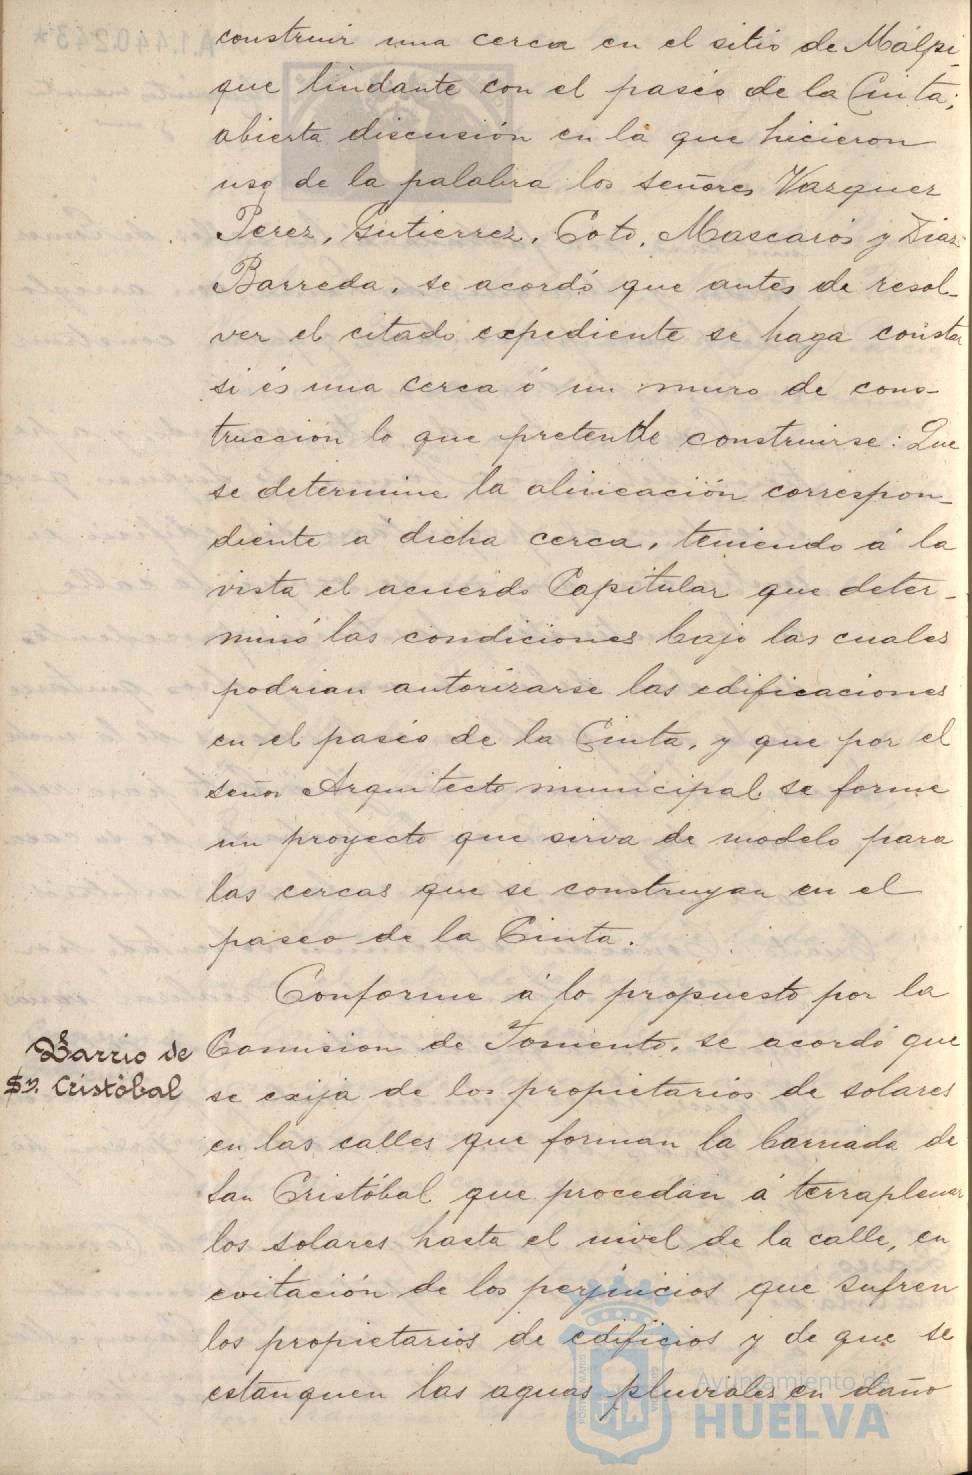 construir una cerca en el sitio de Malpi-
que lindante con el paseo de la Cinta;
abierta discusión en la que hicieron
uso de la palabra los señores Vazquez
Perez, Gutierrez, Coto, Mascarós y Diaz
Barreda, se acordó que antes de resol-
ver el citado expediente se haga constar
si és una cerca ó un muro de cons-
truccion lo que pretende construirse: Que
se determine la alineación correspon-
diente á dicha cerca, teniendo á la
vista el acuerdo Capitular que deter-
minó las condiciones bajo las cuales
podrian autorizarse las edificaciones
en el paseo de la Cinta, y que por el
señor Arquitecto municipal se forme
un proyecto que sirva de modelo para
las cercas que se construyan en el
paseo de la Cinta.
Conforme á lo propuesto por la
Barrio de
Sn. Cristóbal
Comision de Fomento, se acordó que
se exija de los propietarios de solares
en las calles que forman la barriada de
San Cristóbal que procedan á terraplenar
los solares hasta el nivel de la calle, en
evitación de los perjuicios que sufren
los propietarios de edificios y de que se
estanquen las aguas pluviales en daño
Ayuntamiento de
HUELVA